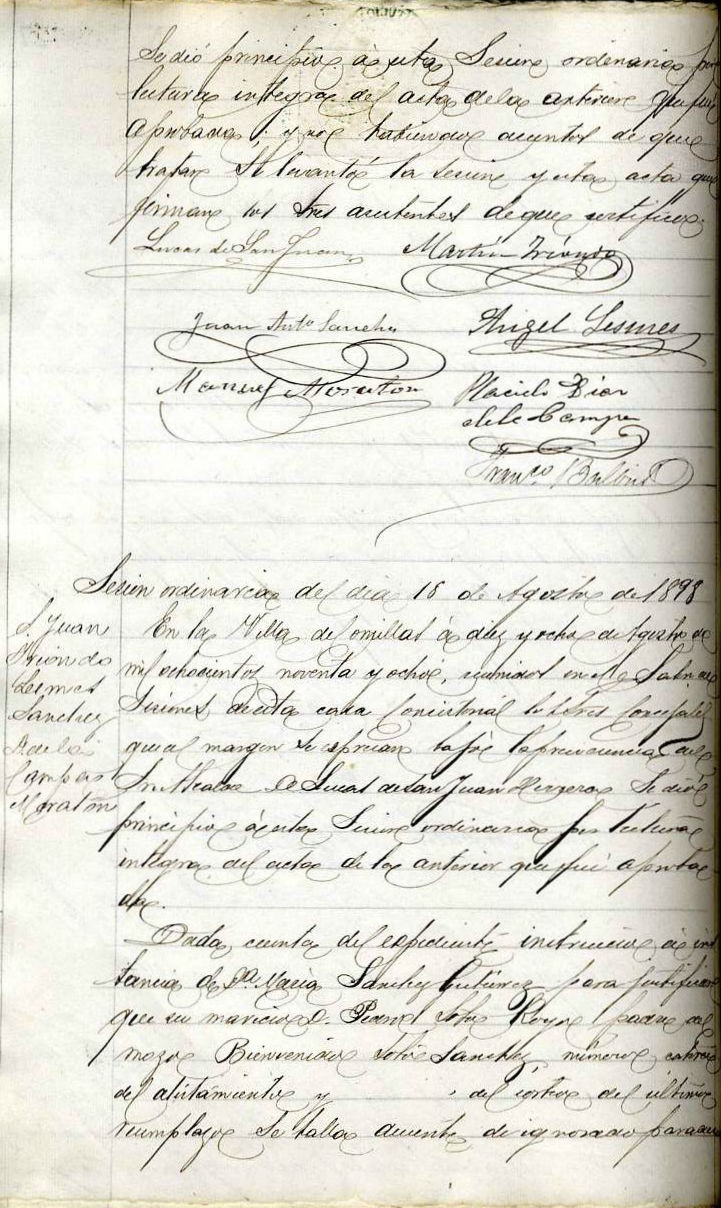 Se dió principio á esta Sesion ordinaria por
lectura integra del acta de la anterior que fue
aprobada; y no habiendo asuntos de que
tratar se levantó la sesion y esta acta que
firman los Sres asistentes de que certifico.
Lucas de San Juan Martin Iriondo
Juan Antº Sanchez Angel Lesmes
Manuel Moraton Placido Diaz
de la Campa
Franco Balbin
Sesion ordinaria del dia 18 de Agosto de 1898
S. Juan
Iriondo
Lesmes
Sanchez
de la
Campa
Moraton
En la Villa de Comillas á diez y ocho de Agosto de
mil ochocientos noventa y ocho, reunidos en el Salon de
Sesiones de esta casa Consistorial los Sres Concejales
que al margen se espresan bajo la presidencia del
Sr Alcalde D. Lucas de San Juan Herrera Se dió
principio á esta Sesion ordinaria por lectura
integra del acta de la anterior que fué aproba
da.
Dada cuenta del espediente instruido á ins
tancia de Dª Maria Sanchez Gutierrez para justificar
que su marido D. Pedro padre del
mozo Bienvenido Sanchez número catorce
del alistamiento y del sorteo del último
reemplazo se halla ausente de ignorado parade